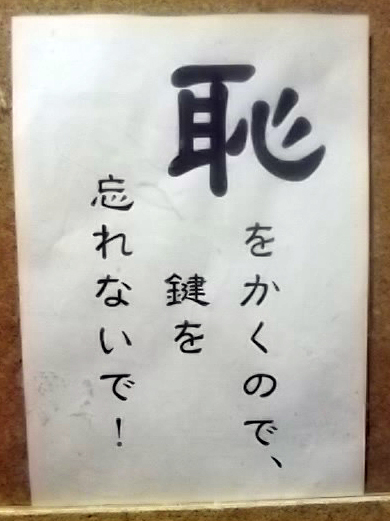 恥をかくので、
鍵を
忘れないで!